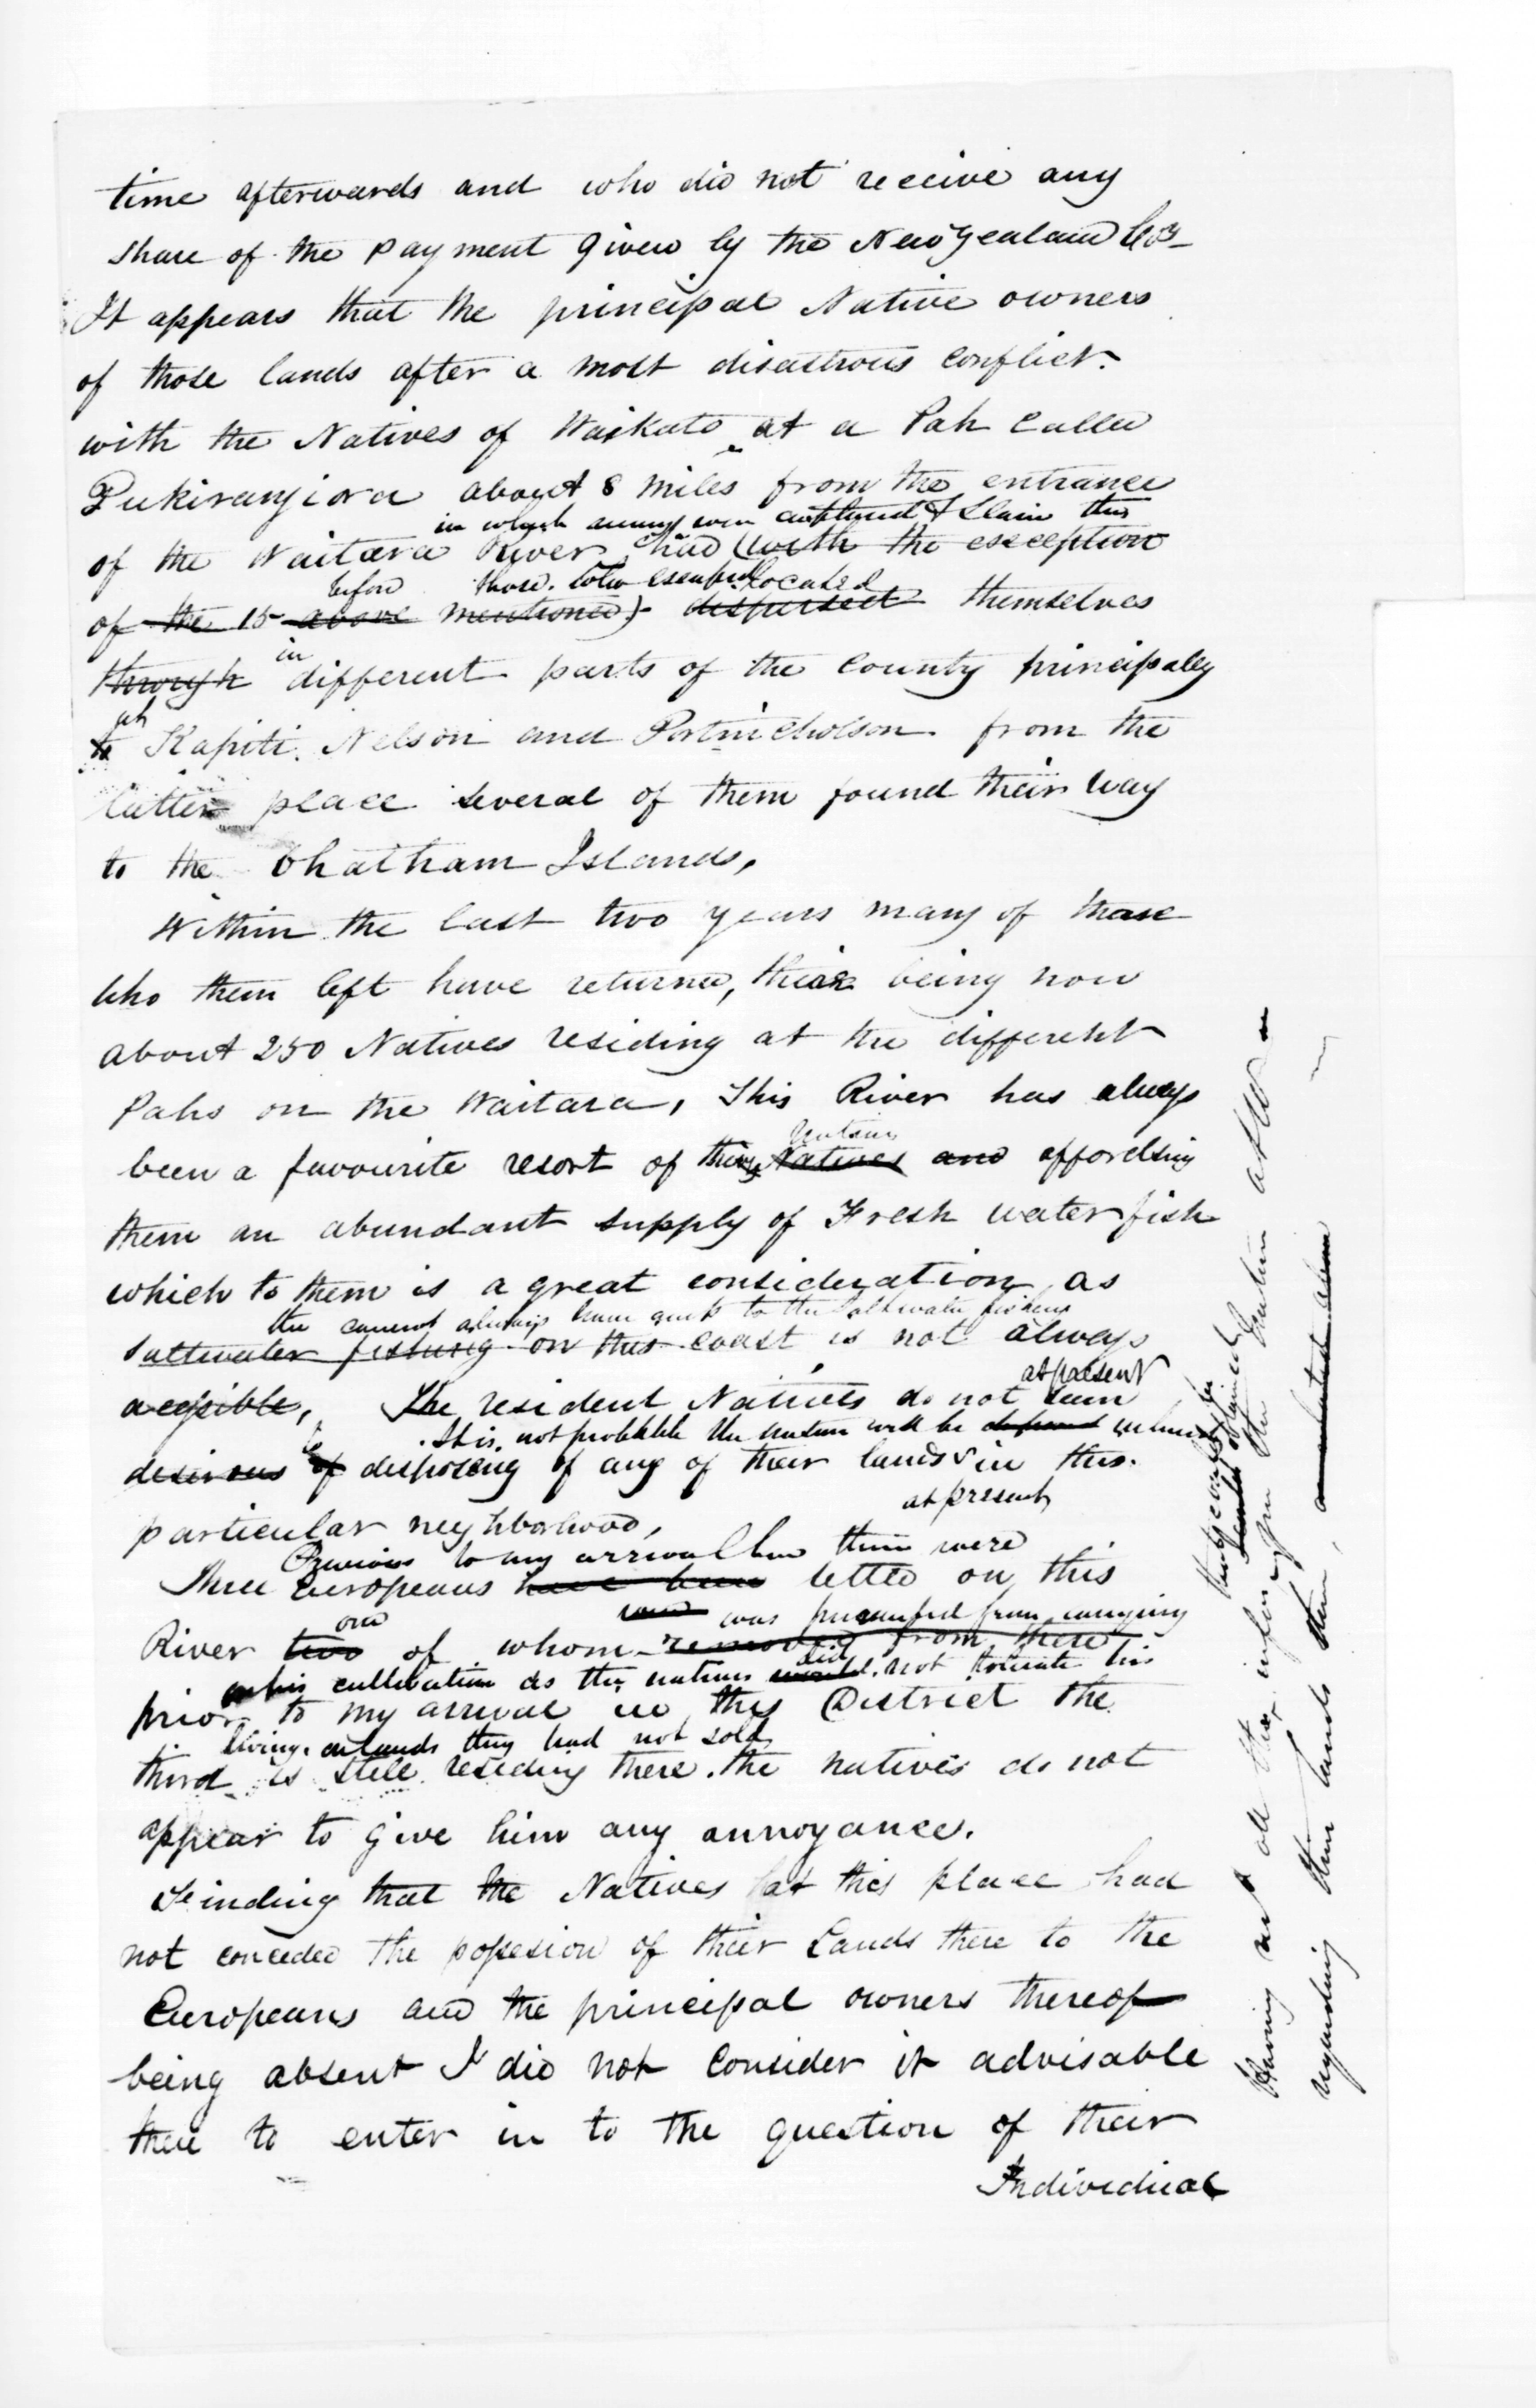 time afterwards and who did not receive any
share of the payment given by the New Zealand Coy
It appears that the principal Native owners
of those lands after a most disastrous conflict
with the Natives of Waikato at a Pah called
Pukirangiora about 8 miles from the entrance
in which many were captured & slain they
of the Waitara River had (with the exception
before those who escaped located
of the 15 above mentioned) dispersed themselves
in
through different parts of the County principaly
at
to Kapiti. Nelson and Portnicholson. from the
latter place several of them found their way
to the Chatham Islands,
Within the last two years many of those
who them left have returned, there being now
about 250 Natives residing at the different
Pahs on the Waitara, This River has always
Natives
been a favourite resort of Natives and affording
them an abundant supply of Fresh water fish
which to them is a great consideration as
the cannot always have to the saltwater fishery
saltwater fishing on this coast is not always
at present
acessible, The resident Natives do not seem
It is not probable the natives will be
to
desirous of disposing of any of their lands in this
at present
particular neighborhood,
Previous to my arrival here there were
Three Europeans have been settled on this
one was from carrying
River two of whom removed from there
on his cultivation as the natives would did not tolerate his
prior to my arrival in this District the
living on lands they had not sold
third is still residing there. the natives do not
appear to give him any annoyance.
Finding that the Natives at this place had
not conceded the posesion of their Lands there to the
Europeans and the principal owners thereof
being absent I did not consider it advisable
there to enter in to the question of their
Individual
Having all the
regarding their lands there,